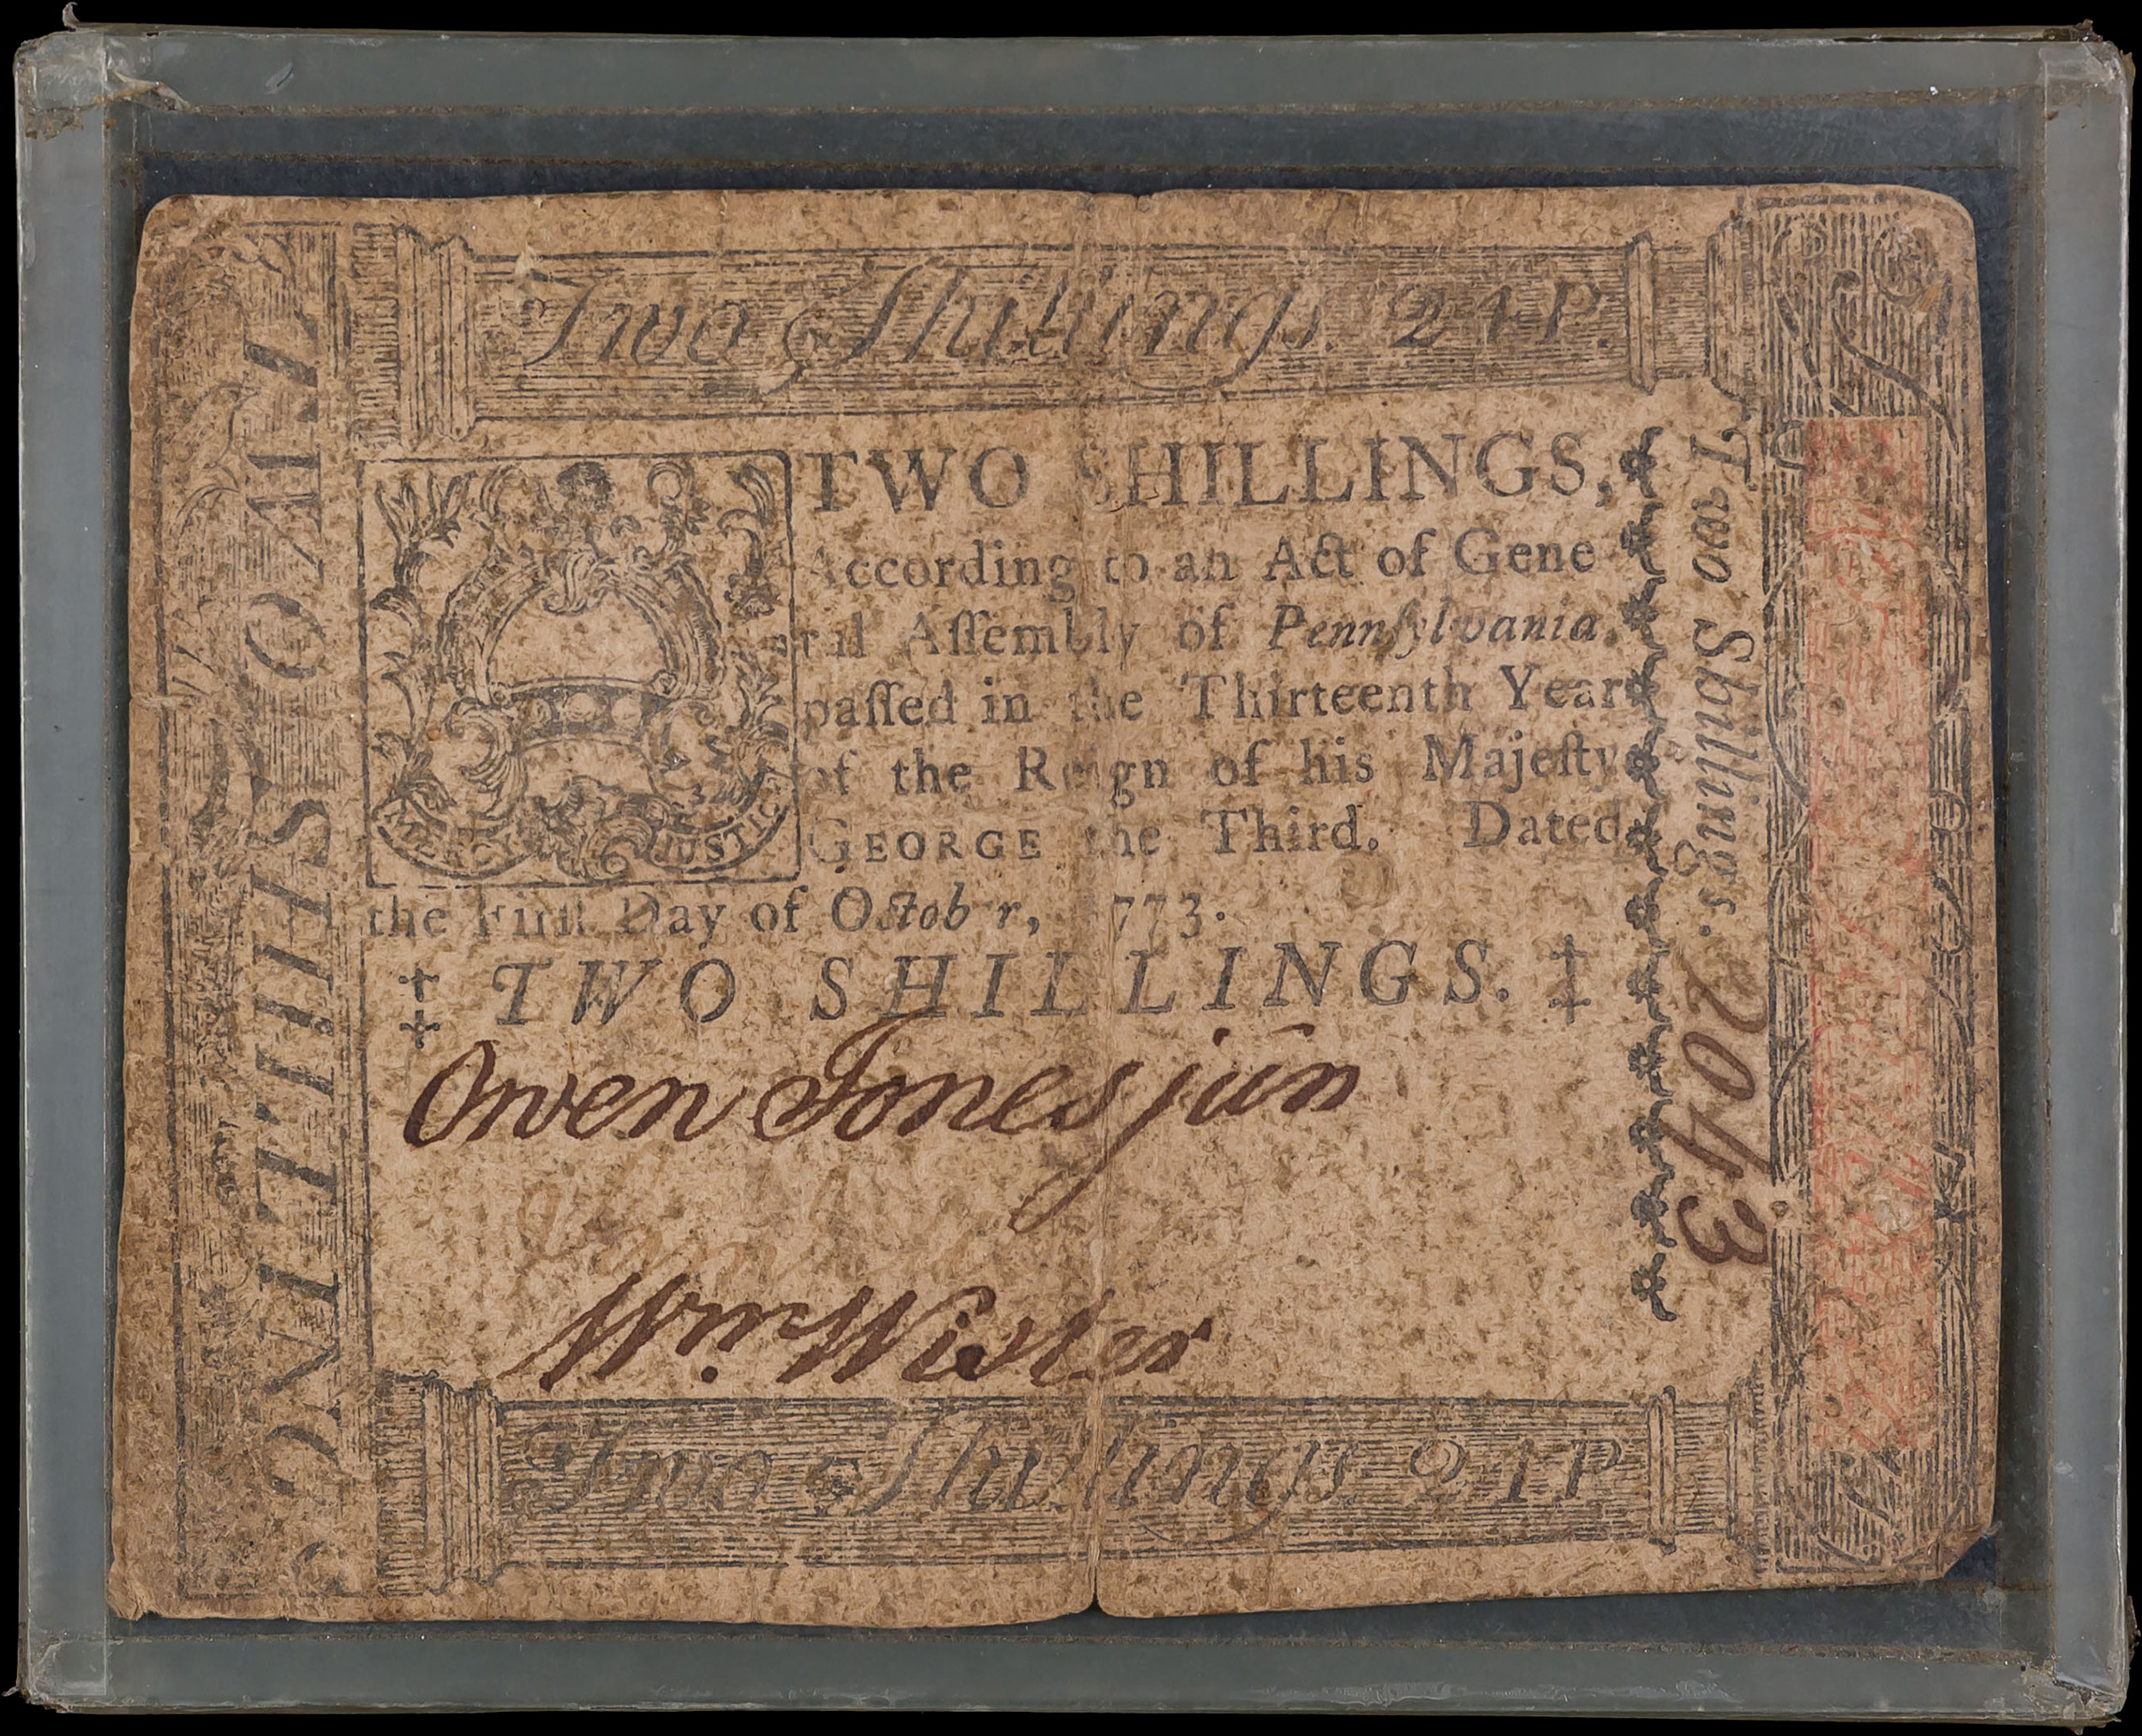 Two Shillings. 24 P.
TWO SHILLINGS,
According to an Act of Gene
ral Aſſembly of Pennſylvania,
paſſed in the Thirteenth Year
of the Reign of his Majeſty
GEORGE the Third. Dated
the Firſt Day of October, 1773.
‡ TWO SHILLINGS. ‡
Owen Jones jun
Wm. Wister
Two Shillings. 24 P
TWO SHILLINGS
MERCY JUSTICE
Two Shillings.
2043